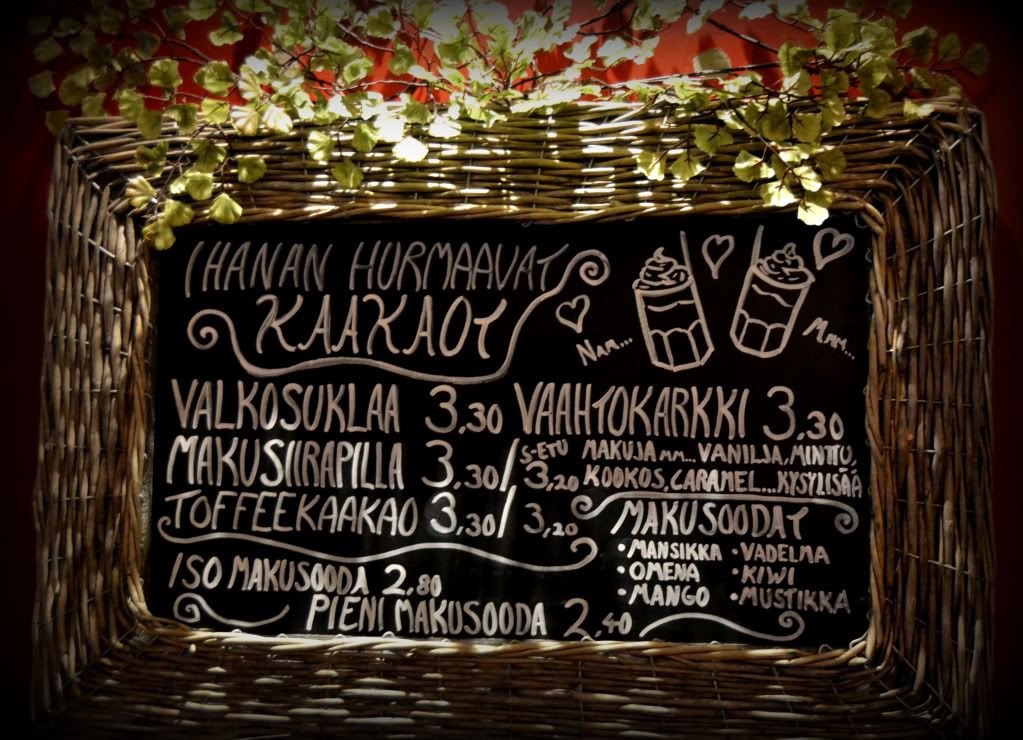 IHANAN HURMAAVAT
KAAKAOT
NAM...
MMM...
VALKOSUKLAA 3,30 VAAHTOKARKKI 3,30
MAKUSIIRAPILLA 3,30/ S-ETU 3,20 MAKUJA MM... VANILJA, MINTTU,
KOOKOS, CARAMEL... KYSY LISÄÄ
TOFFEEKAAKAO 3,30/ 3,20
MAKUSOODAT
•MANSIKKA •VADELMA
•OMENA •KIWI
•MANGO •MUSTIKKA
ISO MAKUSOODA 2,80
PIENI MAKUSOODA 2,40